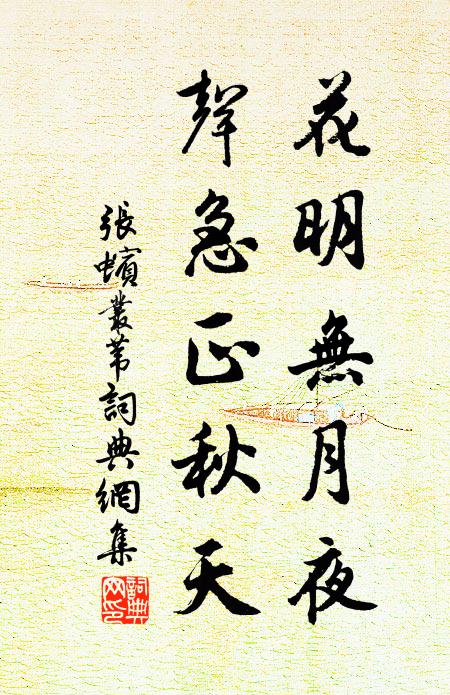 花明無月夜
聲急正秋天
張蠙叢葦詞典網集
詞典網印